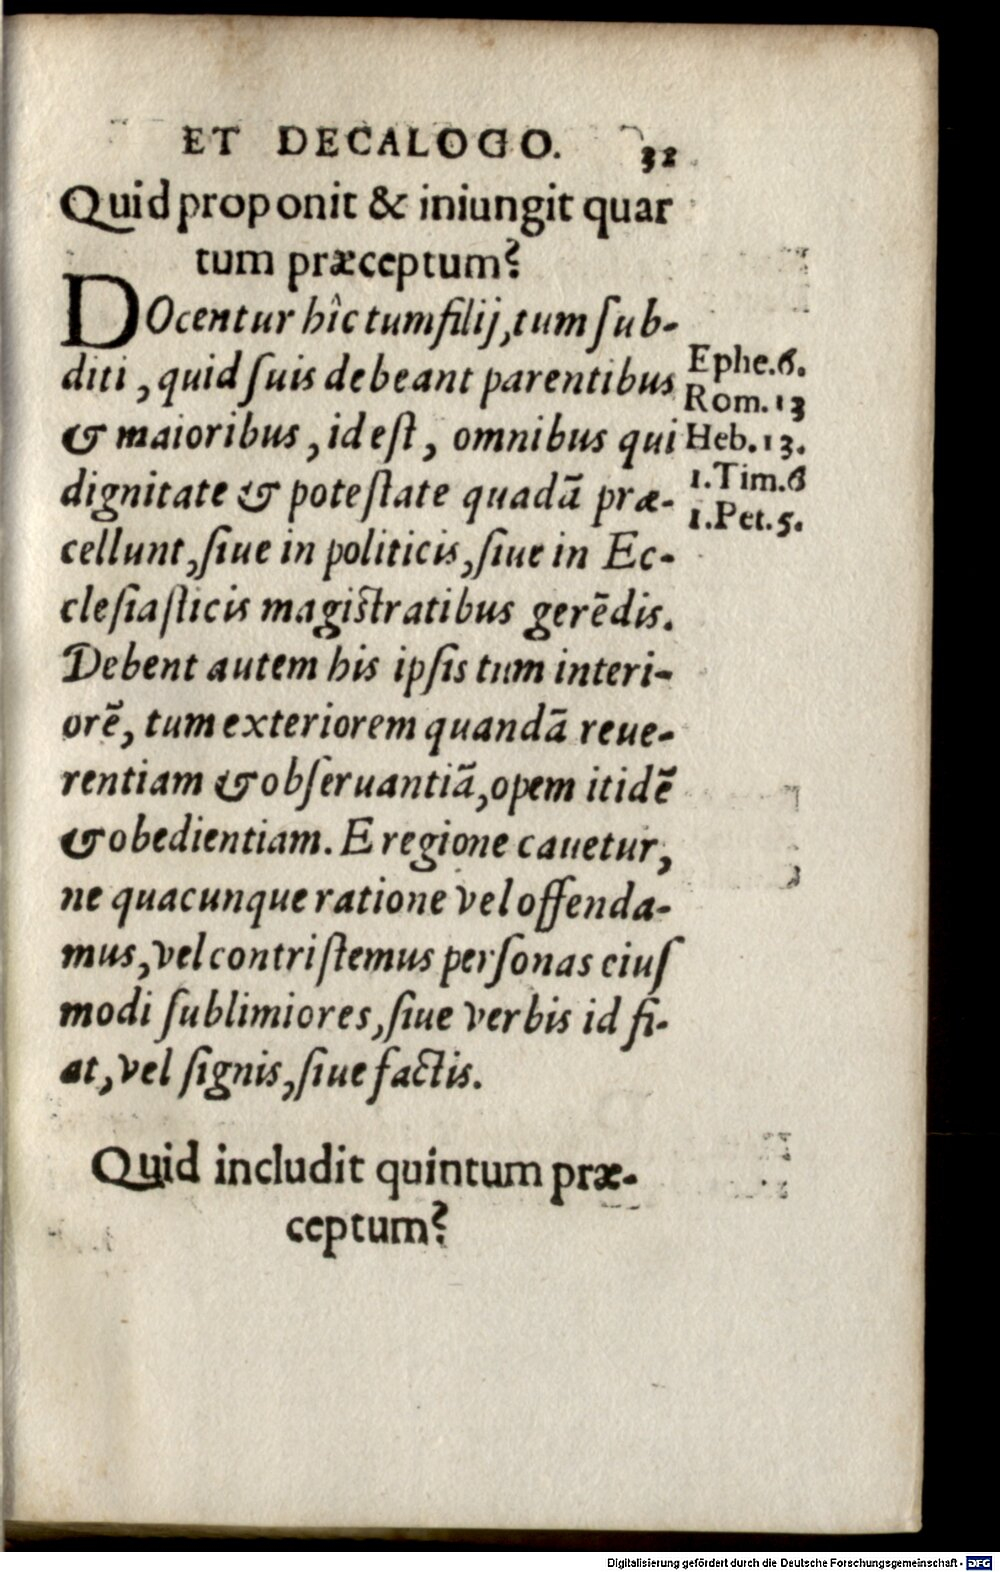 ET DECALOGO. 32
Quid proponit & iniungit quar
tum præceptum?
DOcentur hîc tum filij, tum sub-
diti, quid suis debeant parentibus
& maioribus, id est, omnibus qui
dignitate & potestate quadā præ-
cellunt, siue in politicis, siue in Ec-
clesiasticis magistratibus gerēdis.
Debent autem his ipsis tum interi-
orē, tum exteriorem quandā reue-
rentiam & obseruantiā, opem itidē
& obedientiam. E regione cauetur,
ne quacunque ratione vel offenda-
mus, vel contristemus personas eius
modi sublimiores, siue verbis id fi-
at, vel signis, siue factis.
Ephe.6.
Rom.13
Heb.13.
1.Tim.6
1.Pet.5.
Quid includit quintum præ-
ceptum?
Digitalisierung gefördert durch die Deutsche Forschungsgemeinschaft - DFG